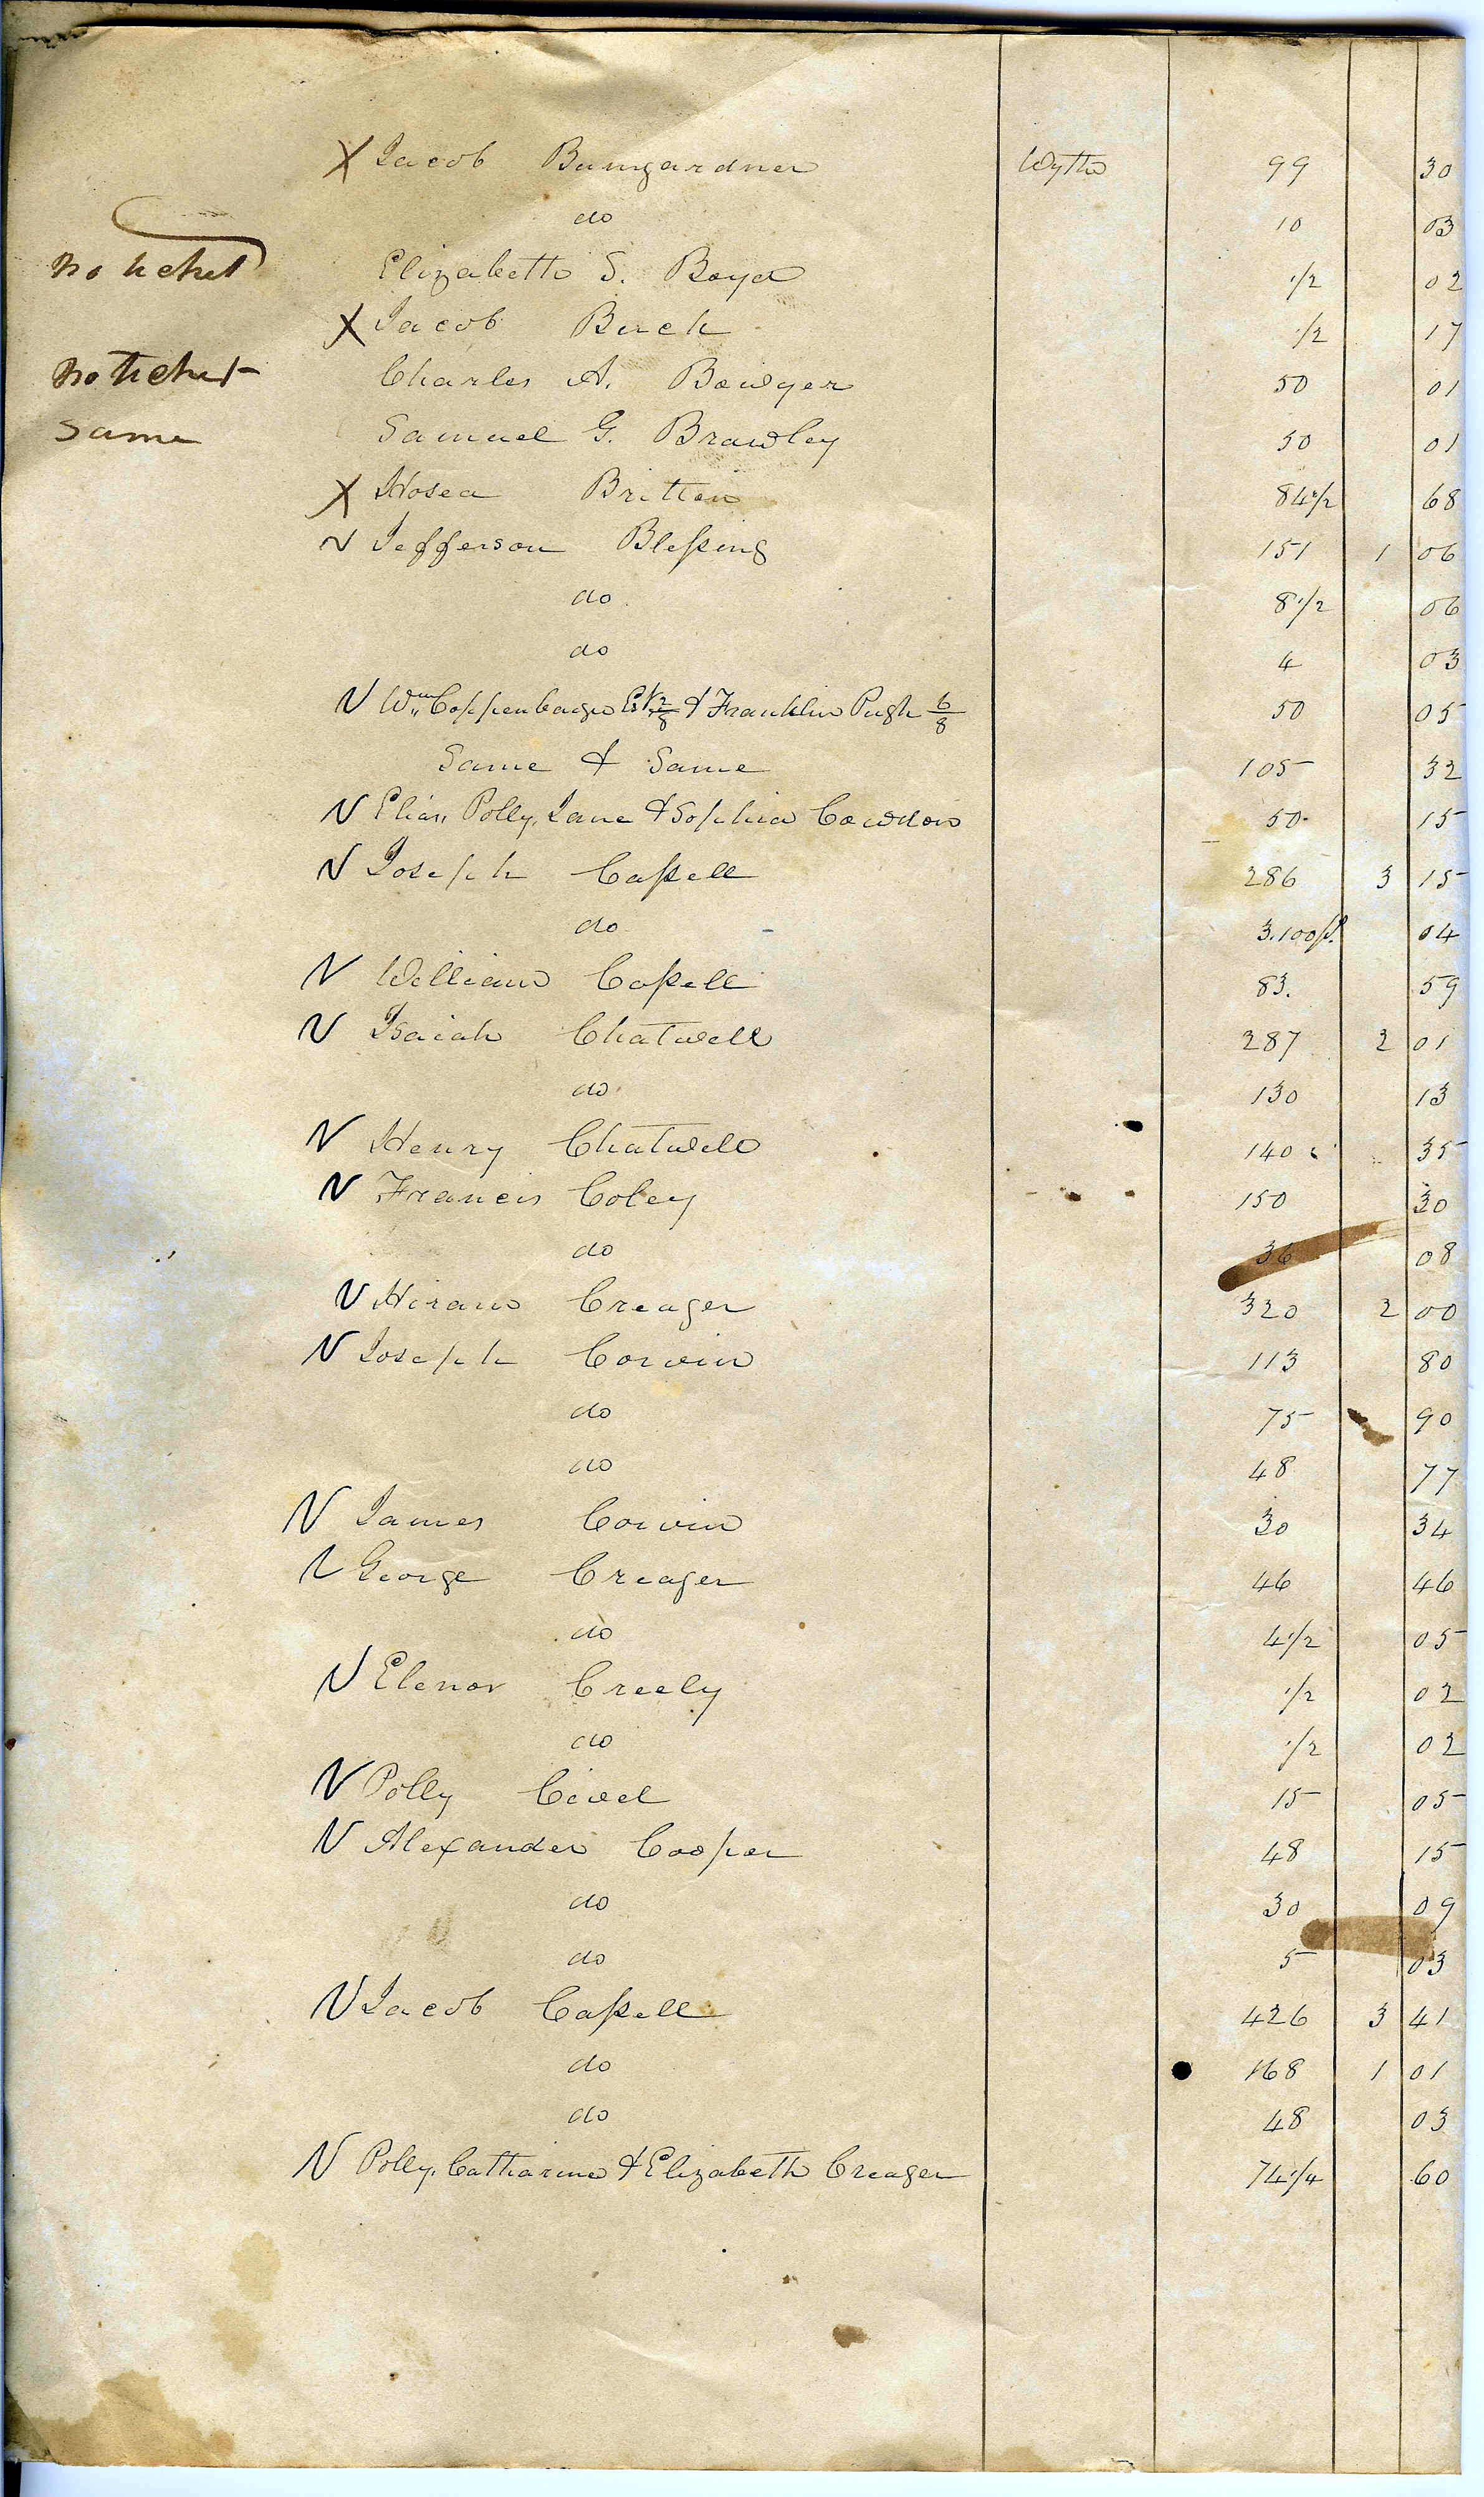 X Jacob Bumgardner Wythe 99 30
do 10 03
no ticket Elizabeth S. Boyd 1/2 02
X Jacob Burch 1/2 17
no ticket Charles A. Bowyer 50 01
same Samuel G. Brawley 50 01
X Hosea Britten 84 1/2 68
N Jefferson Blessing 151 1 06
do 8 1/2 06
do 4 03
N Wm Coppenbarger 2/8 & Franklin Pugh 6/8 50 05
Same & Same 105 32
N Elias, Polly, Jane & Sophia Cowdon 50 15
N Joseph Cassell 286 3 15
do 3.100 p. 04
N William Cassell 83. 59
N Isaiah Chatwell 287 2 01
do 130 13
N Henry Chatwell 140 35
N Francis Coley 150 30
do 36 08
N Hiram Creager 320 2 00
N Joseph Corvin 113 80
do 75 90
do 48 77
N James Corvin 30 34
N George Creager 46 46
do 4 1/2 05
N Elenor Creely 1/2 02
do 1/2 02
N Polly 15 05
N Alexander Cooper 48 15
do 30 09
do 5 03
N Jacob Cassell 426 3 41
do 168 1 01
do 48 03
N Polly, Catharine & Elizabeth Creager 74 1/4 60